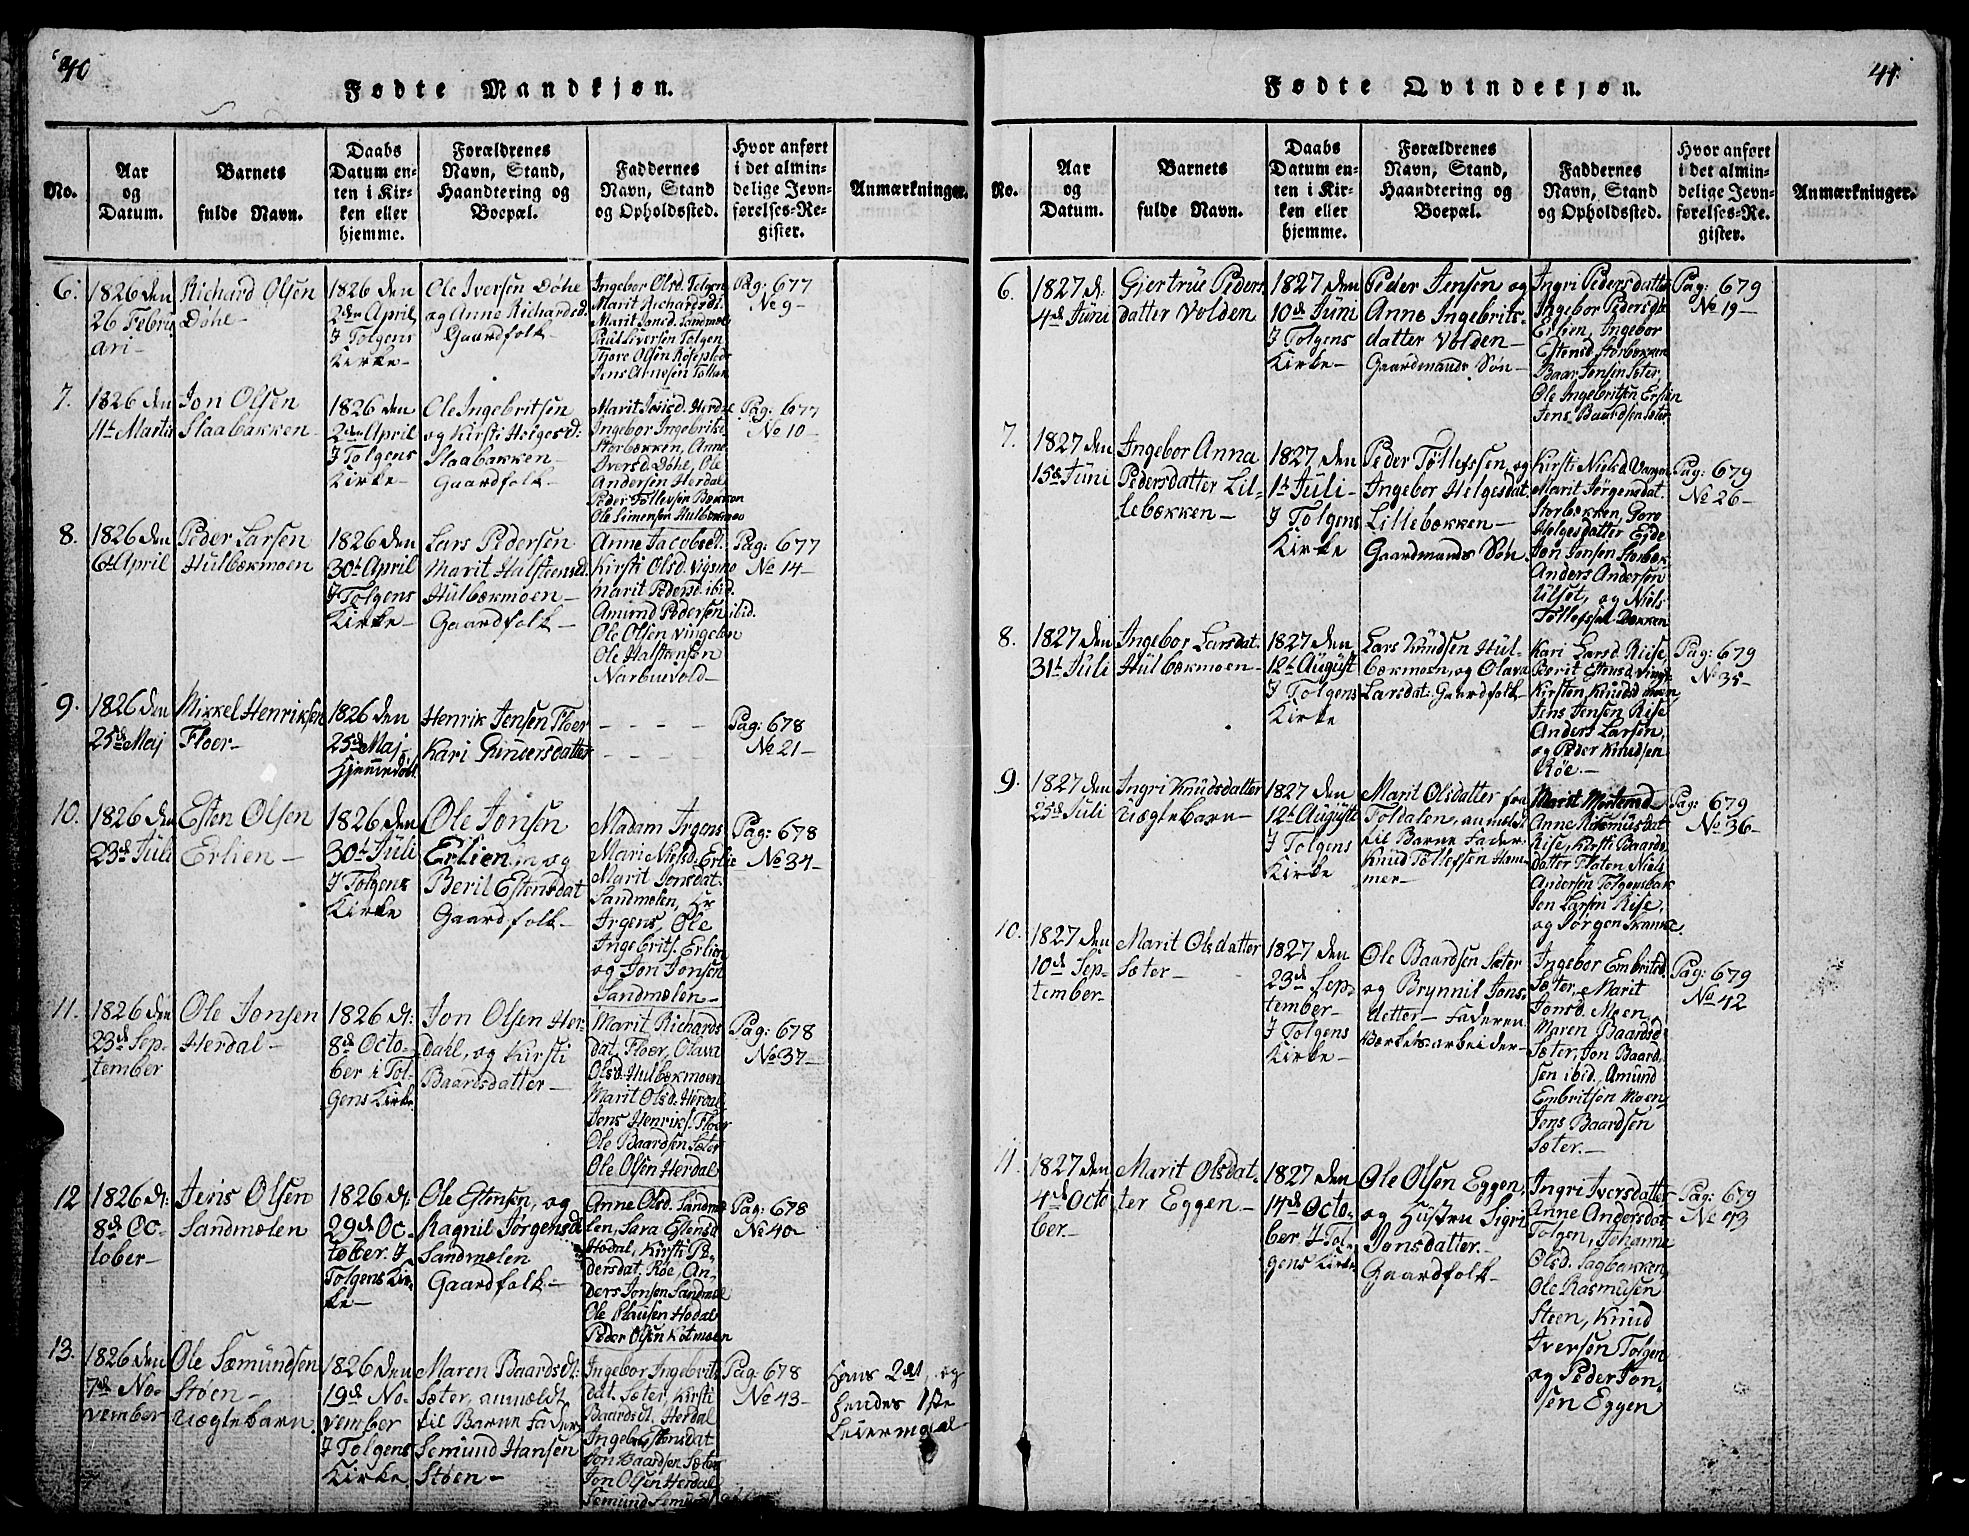 40
Fødte Mandkjøn.
No.
Aar
og
Datum.
Barnets
fulde Navn.
Daabs
Datum en-
ten i Kir-
ken eller
hjemme.
Forældrenes
Navn, Stand,
Haandtering og
Boepæl.
Faddernes
Navn, Stand
og Opholdssted.
Hvor anført
i det almin-
delige Jevn-
førelses-Re-
gister.
Anmærkninger.
6.
1826 den
26 Febru
ari-
Richard Olsen
Døhe-
1826 den
2den April
I Tolgens
Kirke-
Ole Iversen Døhe
og Anne Richardsd.
Gaardfolk-
Ingebor Olsd. Tolgen
Marit Richardsdt.
Marit Jonsd. Sandmæl
Poul Iversen Tolgen
Jens Arnesen
Pag: 677
No 9-
7.
1826 den
11te Martii
Jon Olsen
Slaabakken-
1826 den
2den April
I Tolgens
Kirke-
Ole Ingebritsen
og Kirsti Helgesd:
Slaabakken-
Gaardfolk-
Marit Jonsd. Herdal
Ingebor Ingebrits.
Storbækken, Anne
Iversd. Døhe, Ole
Andersen Herdal
Peder Tollevsen Bækken
Ole Simensen Hulbækmoe
Pag: 677
No 10-
8.
1826 den
6te April
Peder Larsen
Hulbækmoen
1826 den
30te April
I Tolgens
Kirke-
Lars Pedersen
Marit Halstensd.
Hulbækmoen-
Gaardfolk-
Anne Jacobsdt.
Kirsti Olsd. Vigsmo
Marit Pedersd. ibid.
Amund Pedersen ibid.
Ole Olsen Vingelen
Ole Halstensen
Narbuevold-
Pag: 677
No 14-
9.
1826 den
25de Maj
Mikkel Henriksen
Floer-
1826 den
25de Maj-
Hjemmedøbt
Henrik Jensen Floer
Kari Gunersdatter
- - - -
- - - -
Pag: 678
No 21-
10.
1826 den
23de Juli
Esten Olsen
Erlien-
1826 den
30te Juli
I Tolgens
Kirke
Ole Jonsen
Erlien og
Berit Estensdat
Gaardfolk-
Madam Irgens
Mari Nielsd. Erlie
Marit Jonsdat.
Sandmælen, Hr
Irgens, Ole
Ingebrits. Erlien
og Jon Jonsen
Sandmælen-
Pag: 678
No 34-
11.
1826 den
23de Sep-
tember
Ole Jonsen
Herdal-
1826 d:
8de Octo-
ber i Tol-
gens Kirke
Jon Olsen Her-
dahl, og Kirsti
Baardsdatter-
Marit Richards
dat. Floer, Olava
Olsd. Hulbækmoen
Marit Olsd. Herdal
Jens Henriks. Floer
Ole Baardsen Sæter
Ole Olsen Herdal
Pag: 678
No 37-
12
1826 d:
8de Oc-
tober-
Jens Olsen
Sandmælen
1826 d:
29de Oc
tober. I
Tolgens Kir-
ke-
Ole Estensen, og
Ragnil Jørgensd
Sandmælen
Gaardfolk-
Anne Olsd. Sandmæ
len, Sara Estensd
Hodal, Kirsti Pe-
dersdat. Røe, An-
ders Jonsen Sandmæl
Ole Clausen Hodal
Peder Olsen Kotmoen
Pag: 678
No 40-
13.
1826 den
7de No-
vember
Ole Sæmundsen
Støen-
Uægtebarn.
1826 den
19de No-
vember
I Tolgens
Kirke.
Maren Baardsdt:
Sæter, anmældt
til Barne Fader
Semund Hansen
Støen-
Ingebor Ingebrits
dat. Sæter, Kirsti
Baardsdt. Herdal
Ingebor Estensdat
Jon Baardsen Sæter
Jon Olsen Herdal
Sæmund
Pag: 678
No 43-
Hans 2det, og
Hendes 1ste
Leiermaal-
41.
Fødte Qvindekjøn.
No.
Aar
og
Datum.
Barnets
fulde Navn.
Daabs
Datum en-
ten i Kir-
ken eller
hjemme.
Forældrenes
Navn, Stand,
Haandtering og
Boepæl.
Faddernes
Navn, Stand
og Opholdssted.
Hvor anført
i det almin-
delige Jevn-
førelses-Re-
gister.
Anmærkninger.
6.
1827 d:
4de Juni
Gjertrue Peders
datter Volden
1827 den
10de Juni
I Tolgens
Kirke-
Peder Jensen og
Anne Ingebrits-
datter Volden-
Gaardmands Søn-
Ingri Pedersdatter
Ingebor Pedersdt.
Erlien, Ingebor
Estensd. Storbækken
Baar Jonsen Sæter
Ole Ingebritsen Erlien
Jens Baardsen Sæter
Pag: 679
No 19-
7.
1827 den
15de Juni
Ingebor Anna
Pedersdatter Lil-
lebækken-
1827 den
1te Juli-
I Tolgens
Kirke
Peder Tøllefssen og
Ingebor Helgesdat.
Lillebækken-
Gaardmands Søn.
Kirsti Nielsd.
Marit Jørgensdat.
Storbækken, Goro
Helgesdatter Eyde
Jon Jonsen Storbæk
Anders Andersen
Ulset, og Niels
Tøllefssen Bækken
Pag: 679
No 26-
8.
1827 den
31te Juli
Ingebor Larsdat.
Hulbækmoen-
1827 den
12te August
I Tolgens
Kirke
Lars Knudsen Hul-
bækmoen, og Olava
Larsdat: Gaardfolk-
Kari Larsd. Riise,
Berit Estensd. Vingl.
Kirsten Knudsd. Moen,
Jens Jensen Rise
Anders Larsen,
og Peder Knudsen
Røe.-
Pag: 679
No 35-
9.
1827 den
25de Juli
Ingri Knudsdatter
Uægtebarn-
1827 den
12te August
I Tolgens
Kirke
Marit Olsdatter fra
Foldalen, anmeldt
til Barne Fader
Knud Tøllefssen Ham-
mer-
Marit Mortensd.
Anne Rasmusdat
Rise, Kirsti Baards-
datter Flaten, Niels
Andersen Tolgensbak
Jon Larsen Rise,
og Jørgen Skancke
Pag: 679
No 36-
10.
1827 den
10de Sep-
tember-
Marit Olsdatter
Sæter-
1827 den
23de Sep-
tember-
I Tolgens
Kirke-
Ole Baardsen Sæter
og Brynnil Jons-
datter- Faderen
Værketsarbeider-
Ingebor Embritsd.
Sæter, Marit
Jonsd. Moen,
Maren Baardsd
Sæter, Jon Baard-
sen ibid, Amund
Embritsen Moen
Jens Baardsen
Sæter.-
Pag: 679
No 42
11.
1827 den
4de Octo
ber-
Marit Olsdat-
ter Eggen-
1827 den
14de Octo-
ber, I Tol-
gens Kirke
Ole Olsen Eggen,
og Hustru Sigri
Jonsdatter-
Gaardfolk-
Ingri Iversdatter
Anne Andersdat
Tolgen, Johanne
Olsd. Sagbakken
Ole Rasmusen
Steen, Knud
Iversen Tolgen
og Peder Jon-
sen Eggen
Pag: 679
No 43